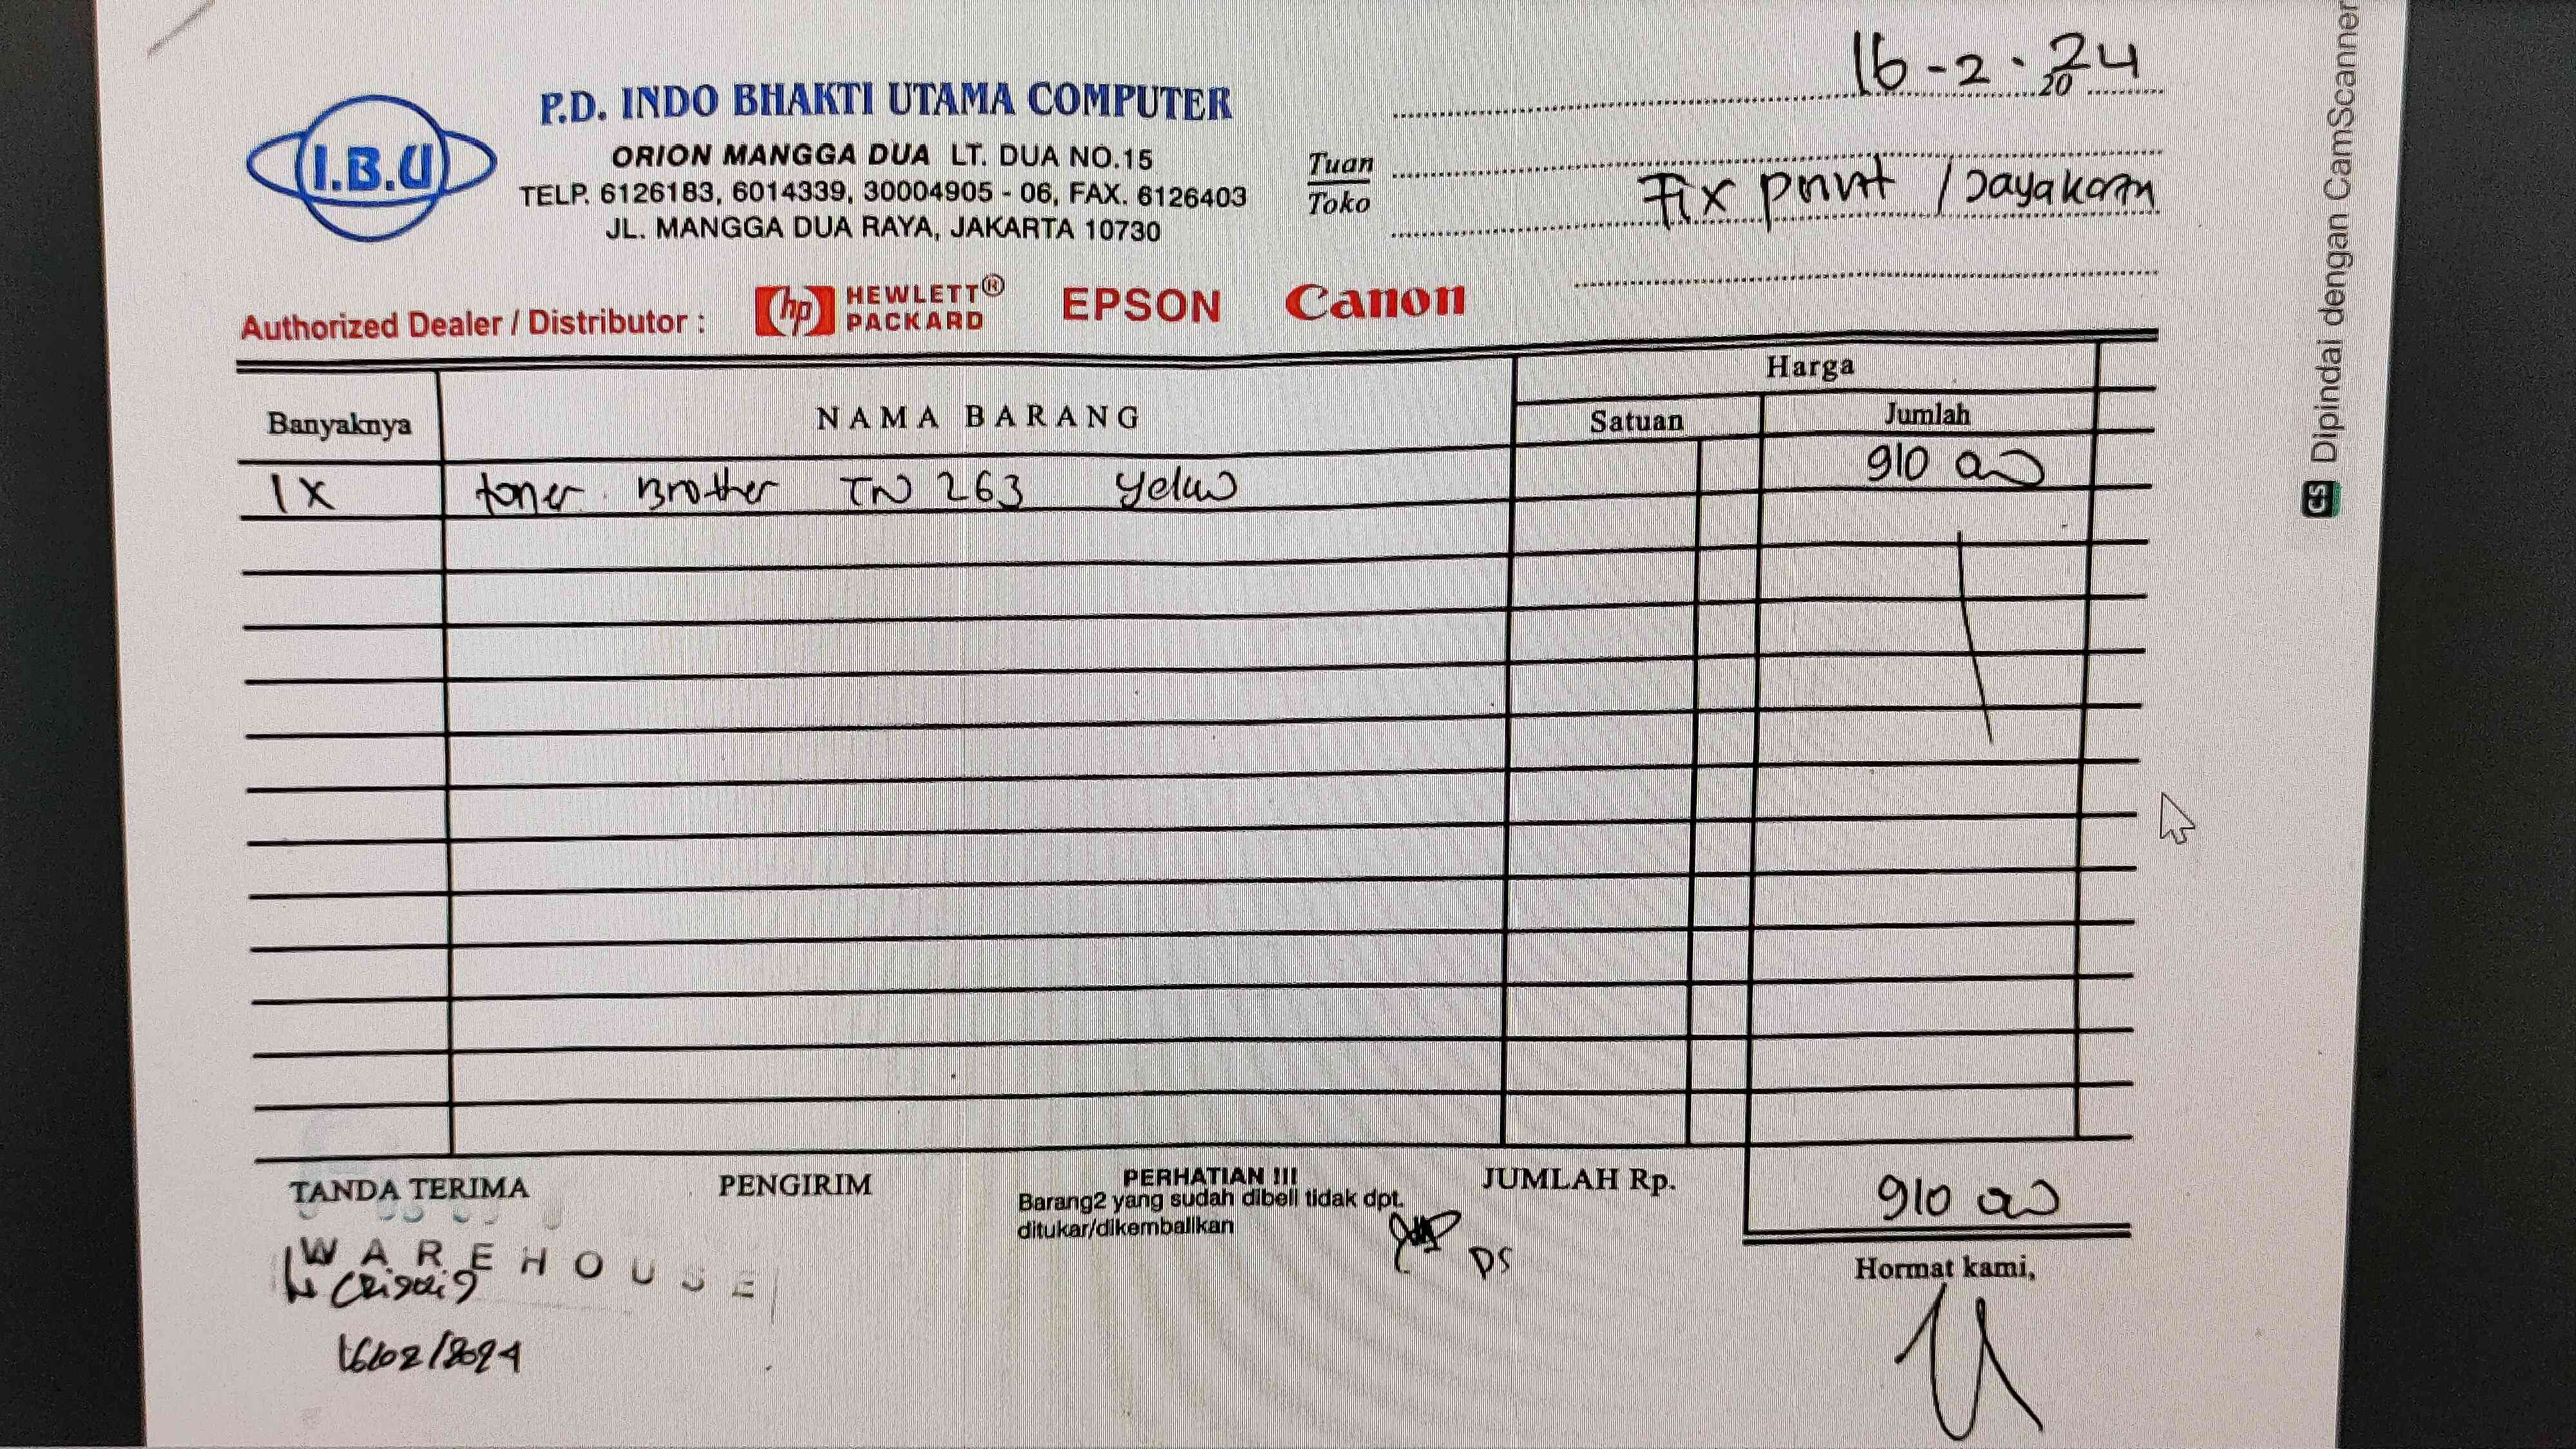 16-2-24
20
I.B.U
P.D. INDO BHAKTI UTAMA COMPUTER
ORION MANGGA DUA LT. DUA NO.15
TELP. 6126183, 6014339, 30004905 - 06, FAX. 6126403
JL. MANGGA DUA RAYA, JAKARTA 10730
Tuan
Toko
Fix print / Jayakarta
Authorized Dealer / Distributor : hp HEWLETT® PACKARD EPSON Canon
Banyaknya NAMA BARANG Harga
Satuan Jumlah
1 X toner Brother TN 263 Yelow 910 000
TANDA TERIMA PENGIRIM PERHATIAN !!! JUMLAH Rp. 910 000
Barang2 yang sudah dibeli tidak dpt.
ditukar/dikembalikan
DS
WAREHOUSE
16/02/2024
Hormat kami,
CS Dipindai dengan CamScanner